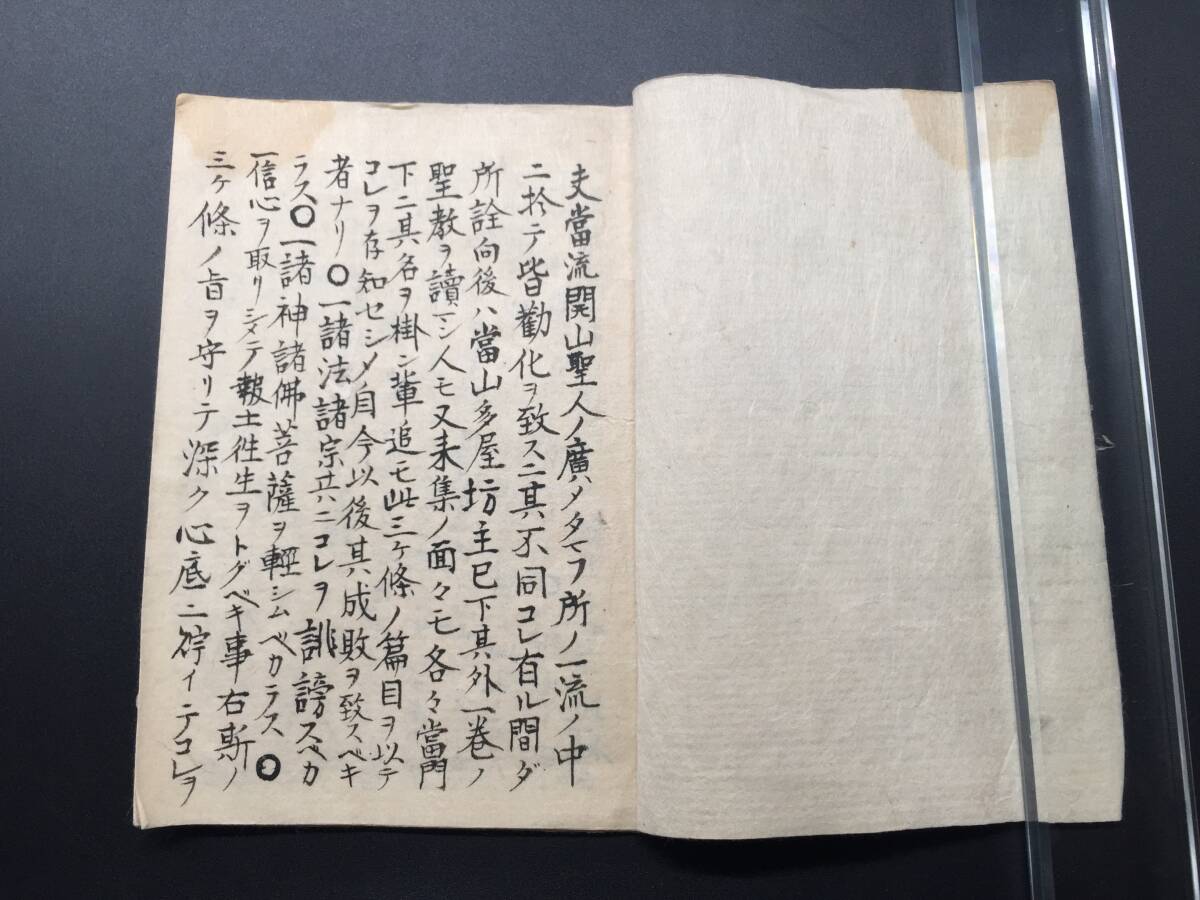 夫當流開山聖人ノ廣メタマフ所ノ一流ノ中
ニ於テ皆勸化ヲ致スニ其不同コレ有ル間ダ
所詮向後ハ當山多屋坊主已下其外一巻ノ
聖教ヲ讀マン人モ又来集ノ面々モ各々當門
下ニ其名ヲ掛ン輩追モ此三ヶ條ノ篇目ヲ以テ
コレヲ存知セシメ自今以後其成敗ヲ致スベキ
者ナリ〇一諸法諸宗共ニコレヲ誹謗スベカ
ラス〇一諸神諸佛菩薩ヲ輕シムベカラス〇
一信心ヲ取リシメテ報土徃生ヲトグベキ事右斯ノ
三ヶ條ノ旨ヲ守リテ深ク心底ニ貯イテコレヲ